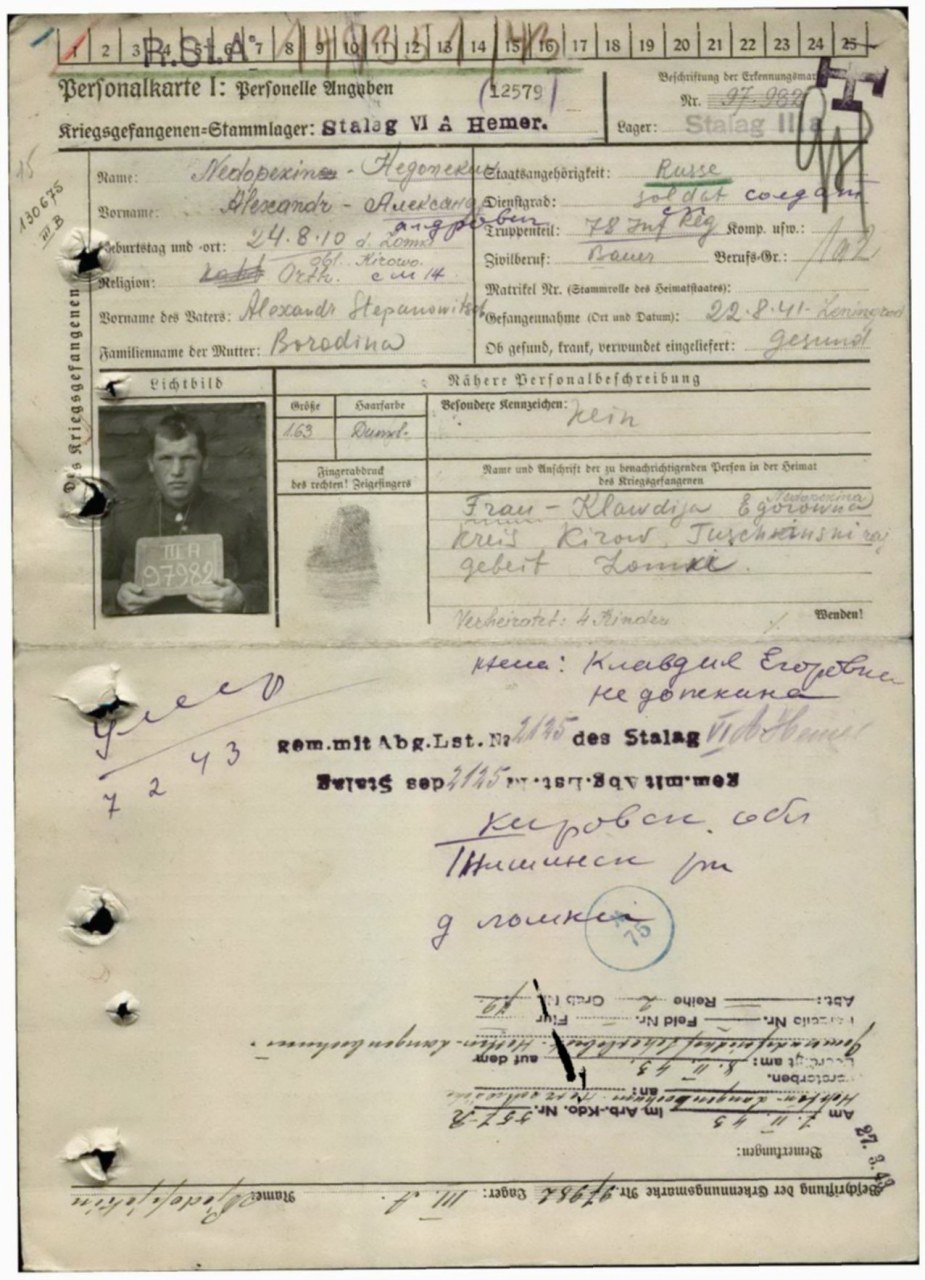 1 2 3 4 5 6 7 8 9 10 11 12 13 14 15 16 17 18 19 20 21 22 23 24 25
R.St.A
Personalkarte I: Personelle Angaben
(12579)
Beschriftung der Erkennungsmarke
Nr. 97982
Kriegsgefangenen=Stammlager: Stalag VI A Hemer.
Lager: Stalag III a
130675
III B
des Kriegsgefangenen
Name: Nedopexin
Vorname: Alexandr -
Geburtstag und -ort: 24.8.10 d.
obl. Kirowo.
Religion: Orth.
Vorname des Vaters: Alexandr Stepanowitsch
Familienname der Mutter: Borodina
Staatsangehörigkeit: Russe
Dienstgrad: Soldat солдат
Truppenteil: 78 Inf Reg Komp. usw.:
Zivilberuf: Bauer Berufs-Gr.:
Matrikel Nr. (Stammrolle des Heimatstaates):
Gefangennahme (Ort und Datum): 22.8.41 - Leningrad
Ob gesund, krank, verwundet eingeliefert: gesund
Lichtbild
III A
97982
Nähere Personalbeschreibung
Größe
163
Haarfarbe
Dunkl.
Besondere Kennzeichen:
Fingerabdruck
des rechten! Zeigefingers
Name und Anschrift der zu benachrichtigenden Person in der Heimat
des Kriegsgefangenen
Nedopexina
Frau - Klawdija Egorowna
Kreis Kirow,
gebeit
Verheiratet: 4 Kinder
Wenden!
жена: Клавдия Егоровна
Недопекина
умер
7 2 43
gem. mit Abg.Lst. № 2125 des Stalag VI A Hemer
gem.mit Abg.Lst.№ 2125 des Stalag
Кировск. обл
д ломки
75
Beschriftung der Erkennungsmarke Nr. 97982 Lager: III. A. Name:
Bemerkungen:
27.3.43
Am 7. II. 43 im Arb.-Kdo. Nr. 557-R
an:
verstorben.
Beerdigt am: 8. II. 43. auf dem
Parzelle Nr. Feld Nr. Flur
Abt.: Reihe 2 Grab Nr.